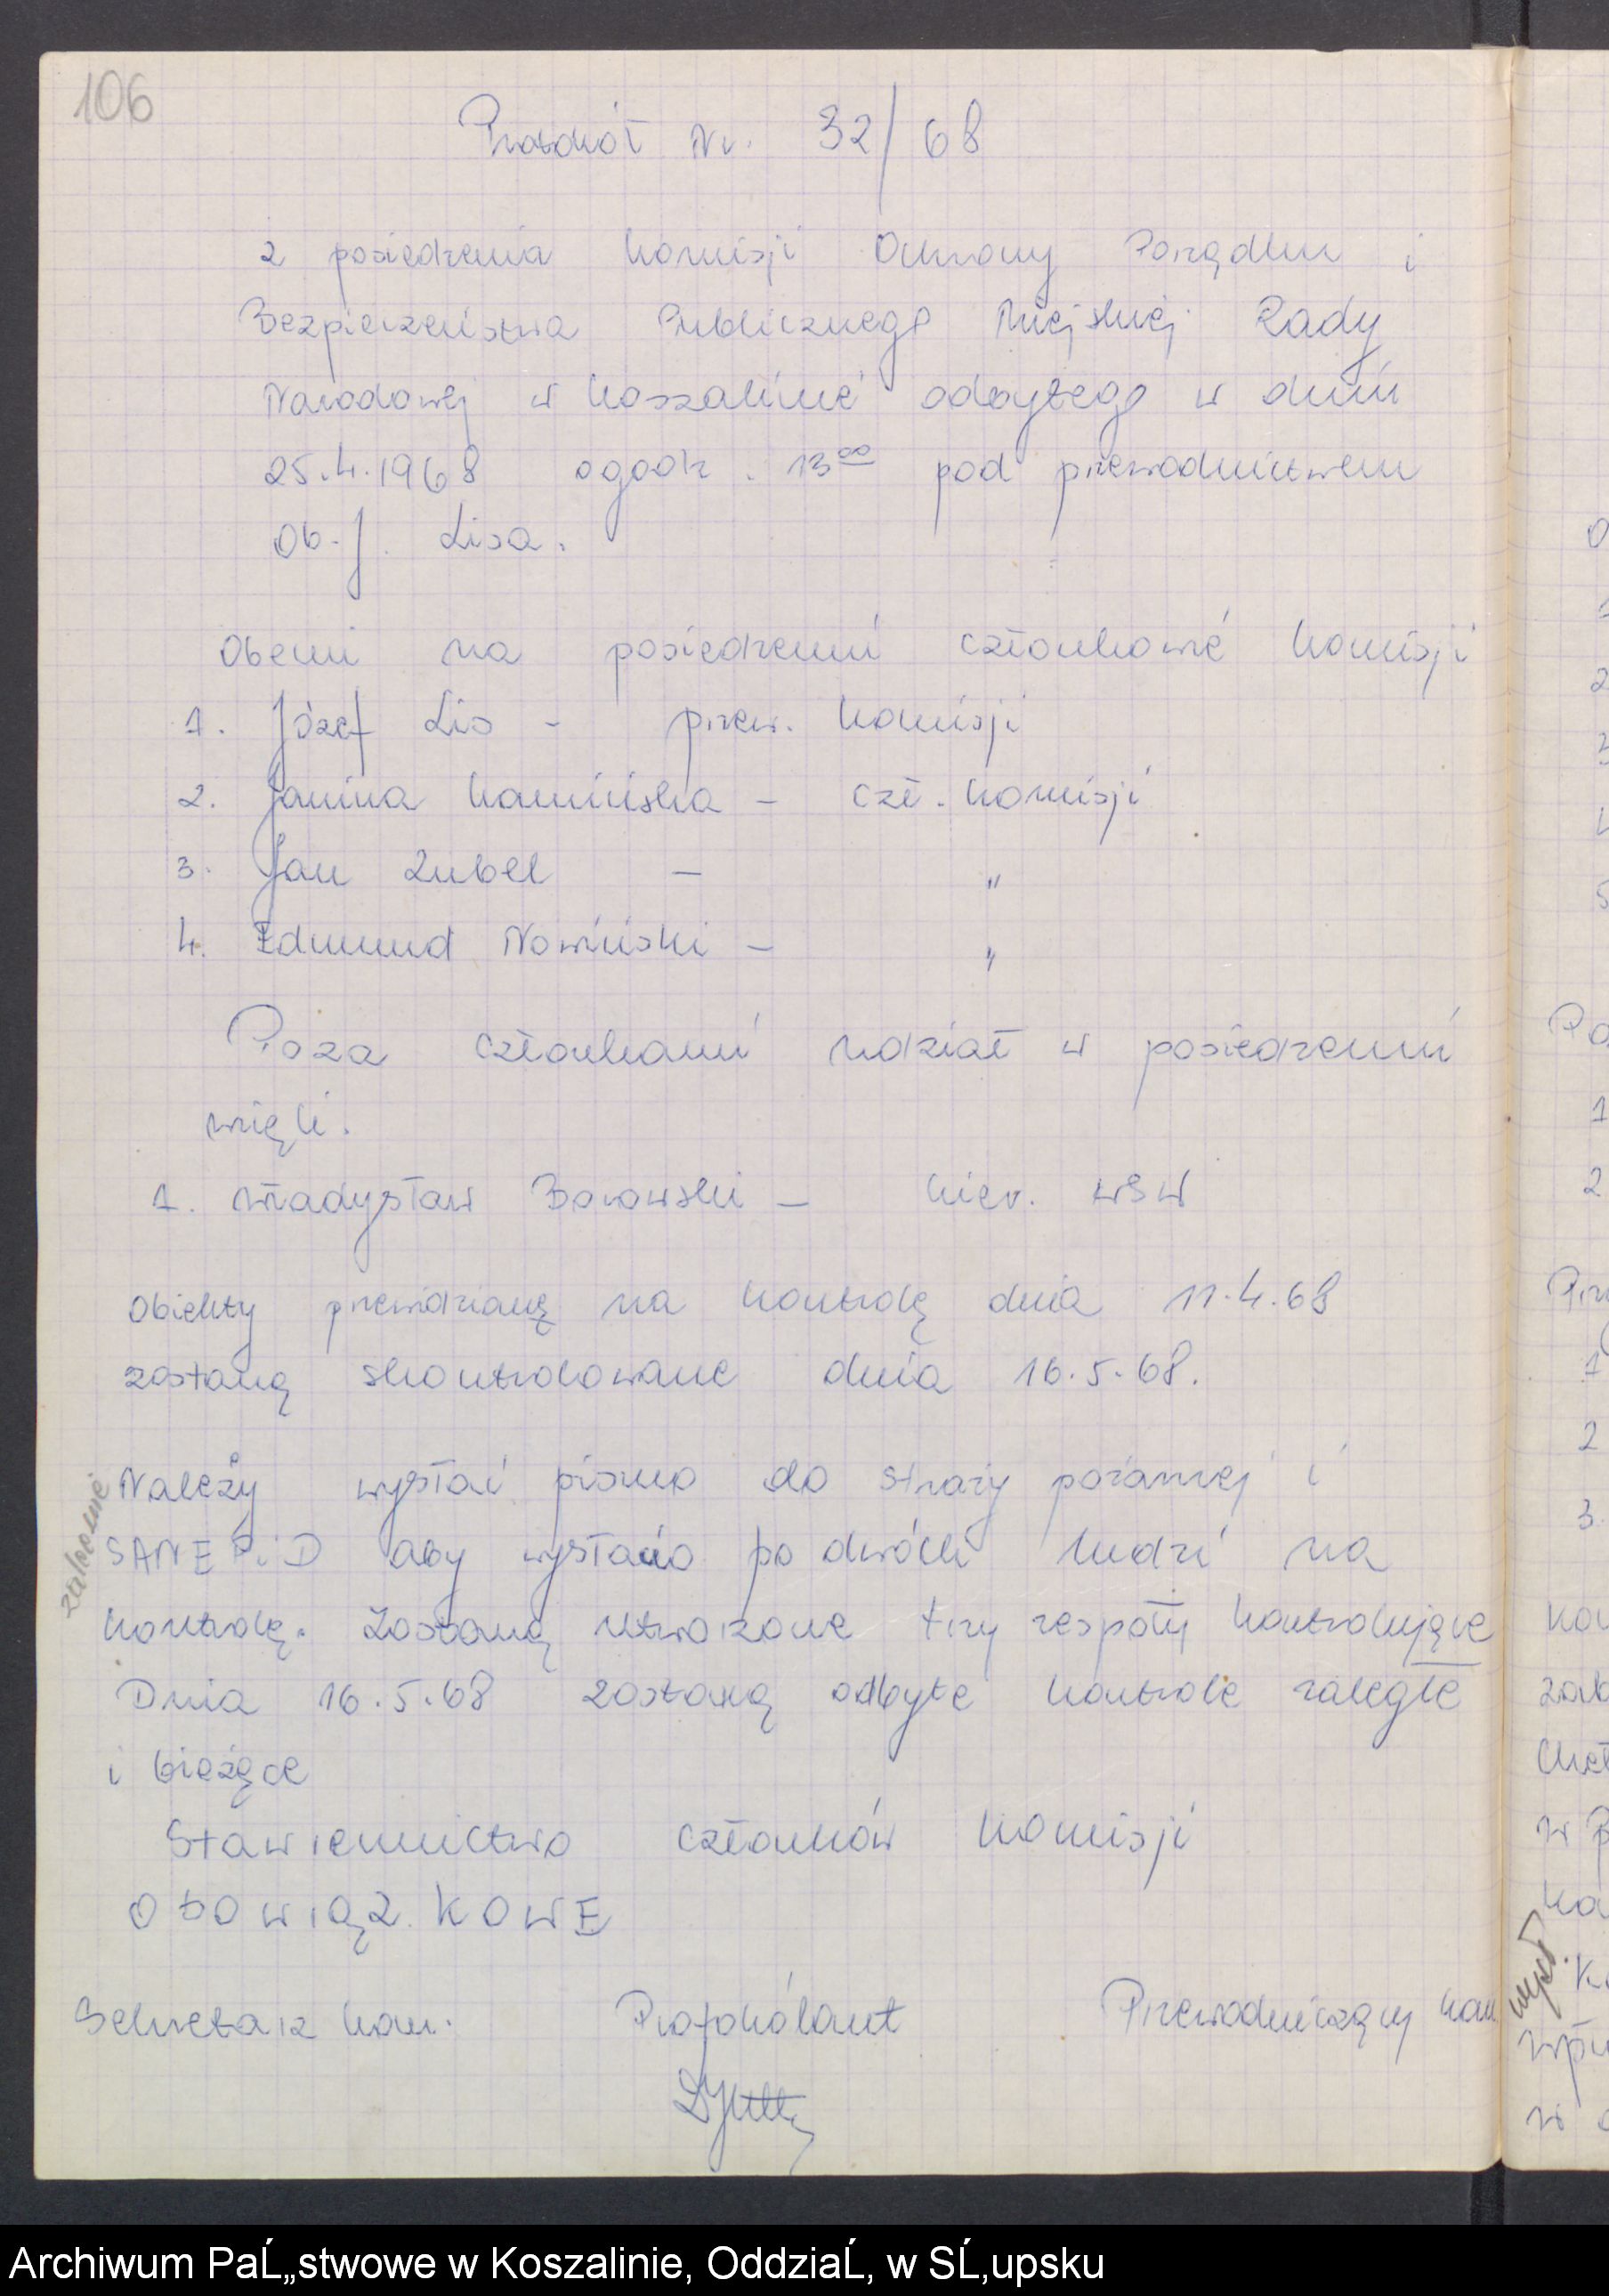 106
Protokół Nr. 32/68
z posiedzenia Komisji Ochrony Porządku i
Bezpieczeństwa Publicznego Miejskiej Rady
Narodowej w Koszalinie odbytego w dniu
25.4.1968 o godz. 13⁰⁰ pod przewodnictwem
Ob. J. Lisa.
Obecni na posiedzeniu członkowie komisji
1. Józef Lis - przew. komisji
2. Janina Kamińska - czł. komisji
3. Jan Lubel - "
4. Edmund Nowiński - "
Poza członkami udział w posiedzeniu
wzięli.
1. Władysław Borowski - kier. WSW
Obiekty przewidzianę na kontrolę dnia 11.4.68
zostaną skontrolowane dnia 16.5.68.
Należy wysłać pismo do straży pożarnej i
SANEPiD aby wysłano po dwóch ludzi na
kontrolę. Zostaną utworzone trzy zespoły kontrolujące
Dnia 16.5.68 zostaną odbyte kontrole zaległe
i bieżące
Stawiennictwo członków komisji
OBOWIĄZKOWE
Sekretarz kom. Protokólant Przewodniczący kom.
Archiwum PaĹ„stwowe w Koszalinie, OddziaĹ‚ w SĹ‚upsku